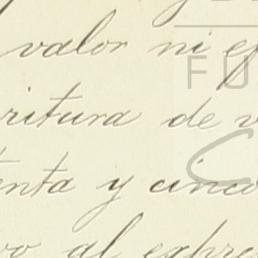 valor ni ef
ritura de v
enta y cinco
vo al expre
FU